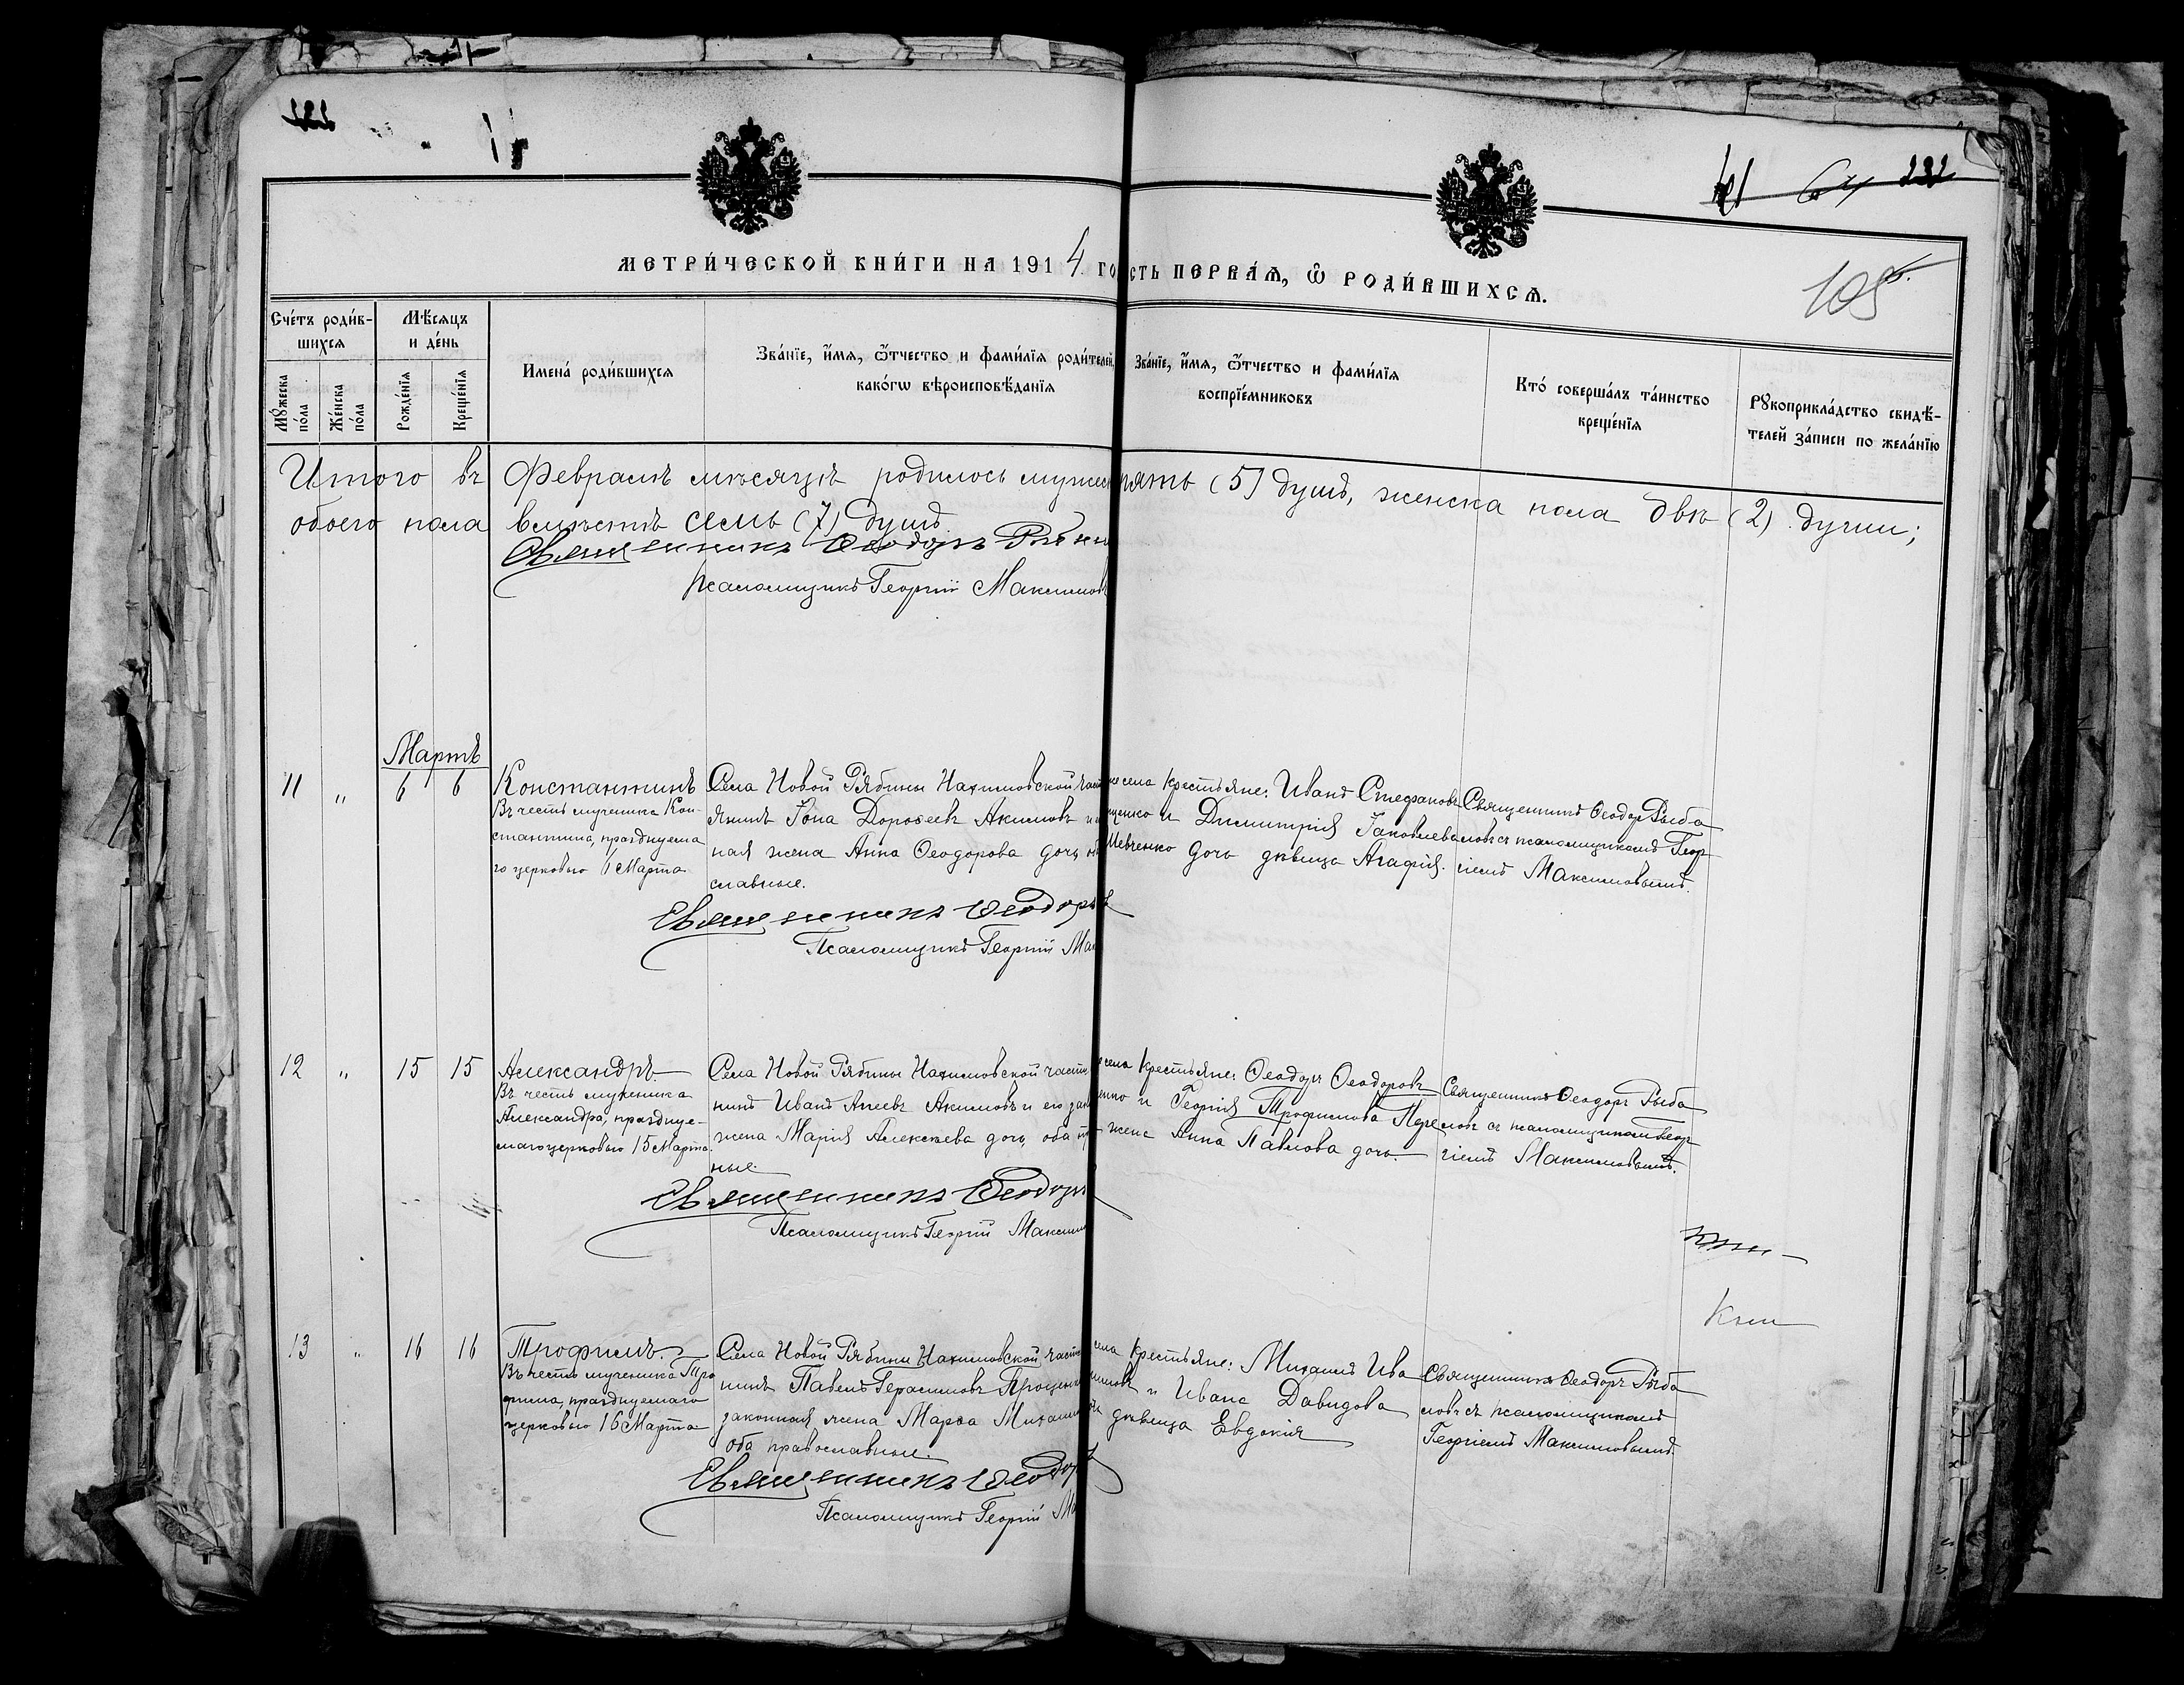 МЕТРИ́ЧЕСКОЙ КНИ́ГИ НА 1914 ГО
СТЬ ПЕРВА́Ѧ, Ѡ҆ РОДИ́ВШИХСѦ.
105
Сче́тъ роди́в-
шихсѧ
Мѣ́сѧцъ
и де́нь
Мꙋ́жеска
по́ла
Же́нска
по́ла
Рожде́нїѧ
Креще́нїѧ
Имена́ роди́вшихсѧ
Зва́нїе, и҆́мѧ, ѻ҆́тчество и фами́лїѧ роди́телей,
како́гѡ вѣроисповѣ́данїѧ
Зва́нїе, и҆́мѧ, ѻ҆́тчество и фами́лїѧ
воспрїе́мниковъ
Кто́ соверша́лъ та́инство
креще́нїѧ
Рꙋкоприкла́дство свидѣ́-
телей за́писи по жела́нїю
Итого въ Февралѣ мѣсяцѣ родилось мужеск пять (5) душъ, женска пола двѣ (2) души;
обоего пола вмѣстѣ семь (7) душъ.
Священникъ Ѳеодоръ Рыба
Псаломщикъ Георгій Максимовъ
Мартъ
11 " 6 6
Константинъ
Въ честь мученика Кон-
стантина, празднуема
го церковью 6 Марта
Села Новой Рябины Нахимовской част
янинъ Іона Дороѳеевъ Акимовъ и
ная жена Анна Ѳеодорова дочь, об
славные.
села крестьяне: Иванъ Стефановъ
щенко и Димитрія Іаковлева
Шевченко дочь дѣвица Агафія.
Священникъ Ѳеодоръ Рыба
ловъ съ псаломщикомъ Геор
гіемъ Максимовымъ.
Священникъ Ѳеодоръ
Псаломщикъ Георгій Мак
12 " 15 15
Александръ
Въ честь мученика
Александра, праздnуе-
маго церковью 15 Марта.
Села Новой Рябины Нахимовской части
нинъ Иванъ Агеевъ Акимовъ и его зак
жена Марія Алексѣева дочь, оба п
ные.
села крестьяне: Ѳеодоръ Ѳеодоровъ
енко и Георгія Трофимова
жена Анна Павлова дочь.
Священникъ Ѳеодоръ Рыба
ловъ съ псаломщикомъ Геор
гіемъ Максимовымъ.
Священникъ Ѳеодоръ
Псаломщикъ Георгій Максим
13 " 16 16
Трофимъ.
Въ честь мученика Тро
фима, празднуемаго
церковью 16 Марта
Села Новой Рябины Нахимовской части
нинъ Павелъ Герасимовъ Проценк
законная жена Марѳа Михаил
оба православные.
села крестьяне: Михаилъ Ива
и Ивана Давидова
дѣвица Евдокія
Священникъ Ѳеодоръ Рыба
ловъ съ псаломщикомъ
Георгіемъ Максимовымъ.
Священникъ Ѳеодоръ
Псаломщикъ Георгій Ма